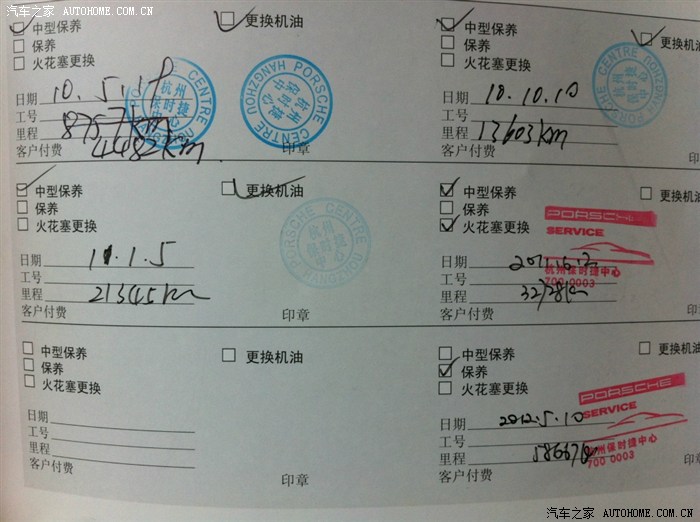 汽车之家 AUTOHOME.COM.CN
中型保养 更换机油
保养
火花塞更换
日期 10.5.18
工号
里程 8757km
4482km
客户付费 印章
PORSCHE CENTRE HANGZHOU
杭州保时捷中心
中型保养 更换机油
保养
火花塞更换
日期 10.10.10
工号
里程 13603km
客户付费 印章
PORSCHE CENTRE HANGZHOU
杭州保时捷中心
中型保养 更换机油
保养
火花塞更换
日期 11.1.5
工号
里程 21345km
客户付费 印章
PORSCHE CENTRE HANGZHOU
杭州保时捷中心
中型保养 更换机油
保养
火花塞更换
日期
工号
里程
客户付费 印章
PORSCHE
SERVICE
杭州保时捷中心
700 0003
中型保养 更换机油
保养
火花塞更换
日期
工号
里程
客户付费 印章
中型保养 更换机油
保养
火花塞更换
日期 2012.5.10
工号
里程
客户付费 印章
PORSCHE
SERVICE
杭州保时捷中心
700 0003
汽车之家 AUTOHOME.COM.CN